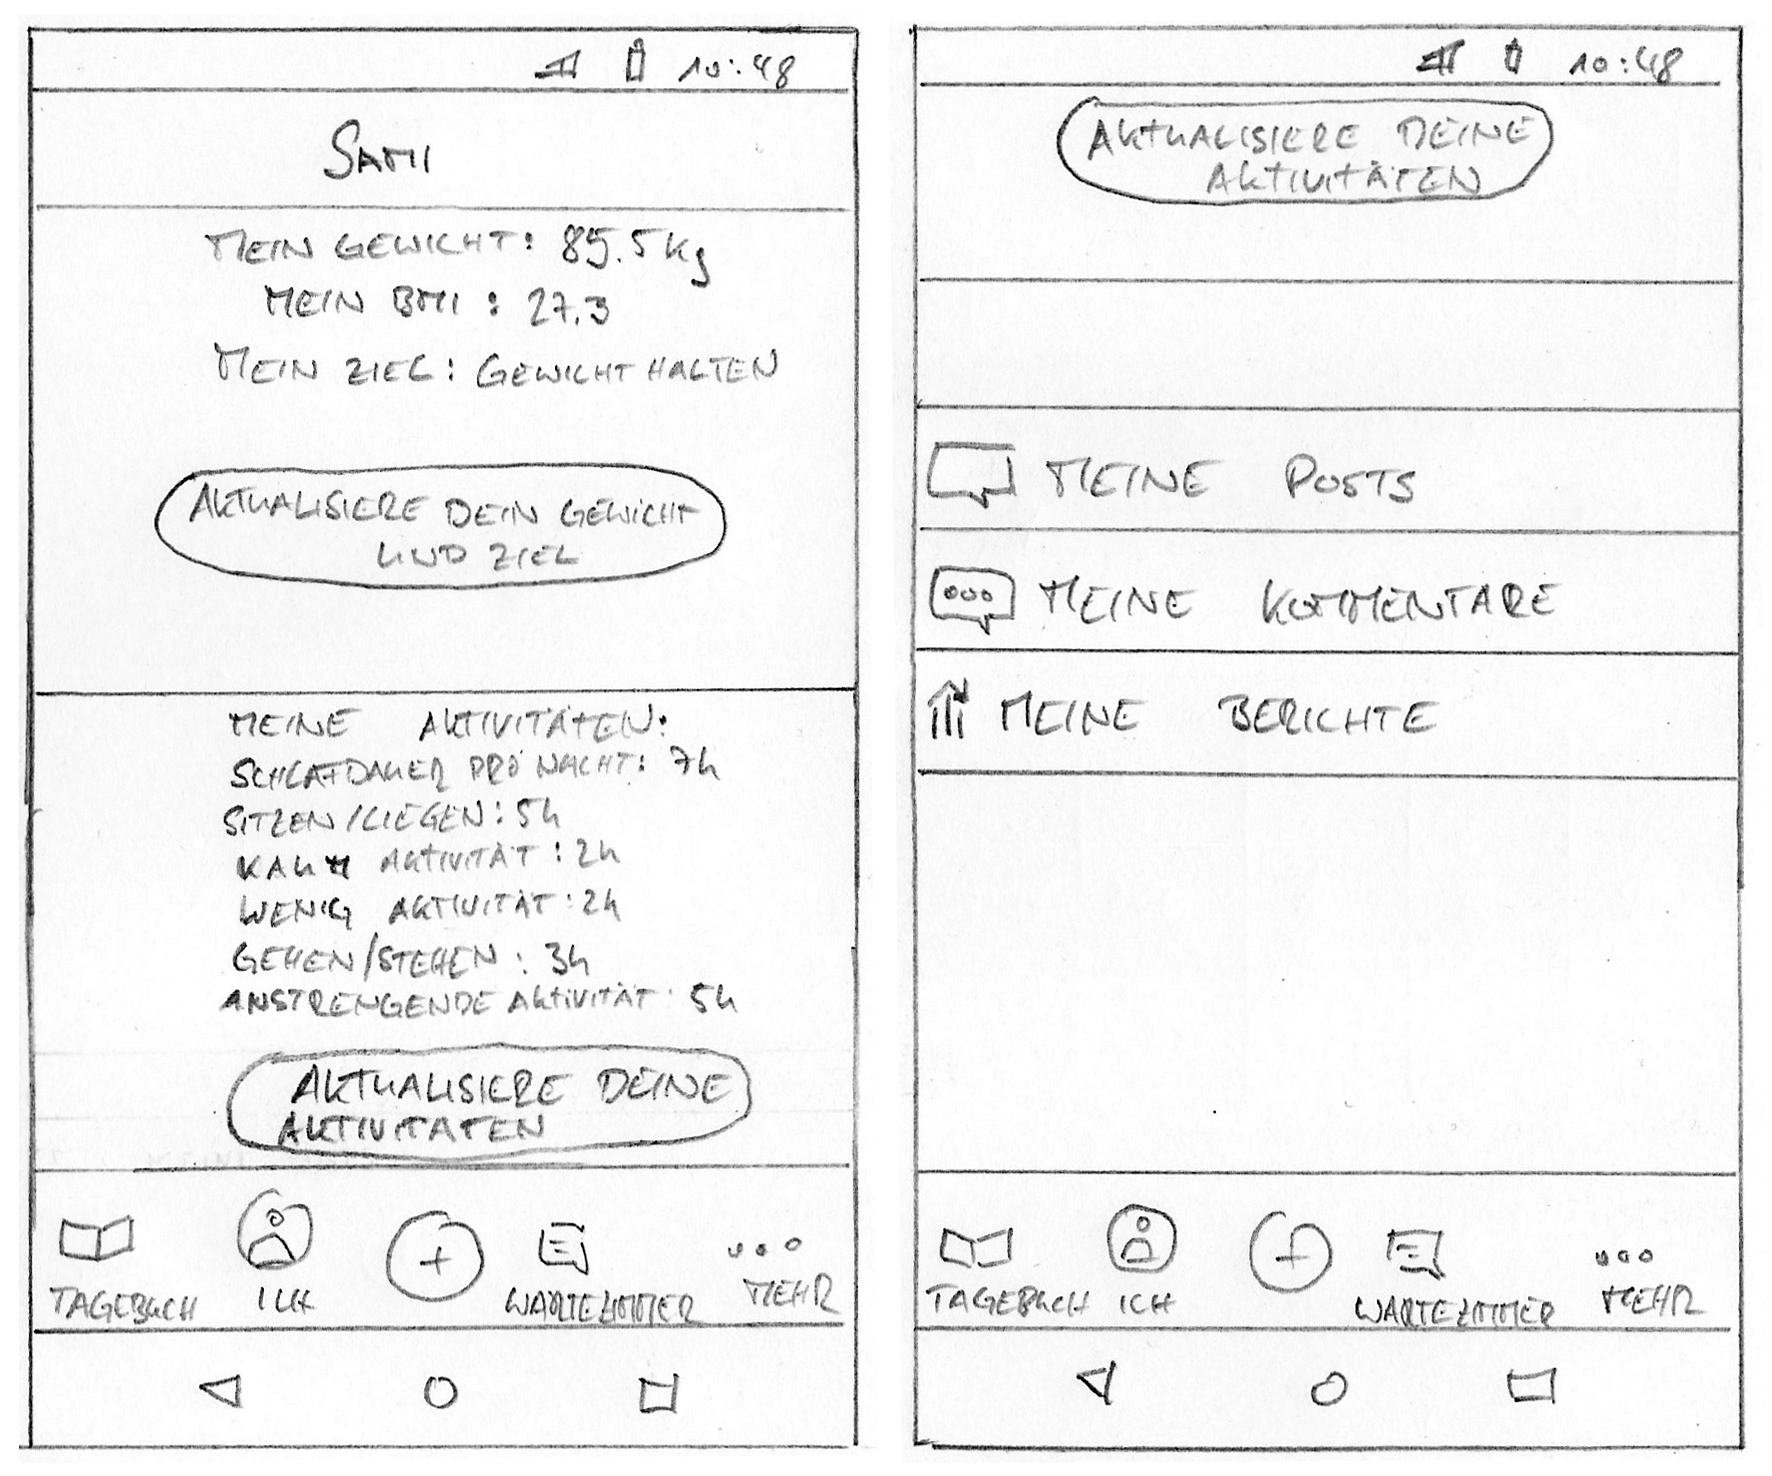 10:48
SAMI
MEIN GEWICHT: 85.5 kg
MEIN BMI : 27.3
MEIN ZIEL: GEWICHT HALTEN
AKTUALISIERE DEIN GEWICHT
UND ZIEL
MEINE AKTIVITÄTEN:
SCHLAFDAUER PRO NACHT: 7h
SITZEN/LIEGEN: 5h
KAUM AKTIVITÄT : 2h
WENIG AKTIVITÄT : 2h
GEHEN/STEHEN : 3h
ANSTRENGENDE AKTIVITÄT : 5h
AKTUALISIERE DEINE
AKTIVITATEN
TAGEBUCH ICH WARTEZIMMER MEHR
10:48
AKTUALISIERE DEINE
AKTIVITÄTEN
MEINE POSTS
MEINE KOMMENTARE
MEINE BERICHTE
TAGEBUCH ICH WARTEZIMMER MEHR